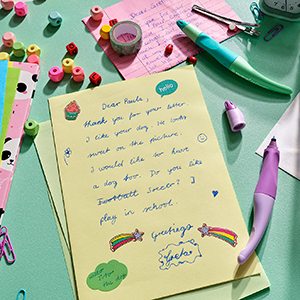 Dear Paula,
hello
thank you for your letter.
I like your dog. He looks
sweet on the picture.
I would like to have
a dog too. Do you like
Football Soccer? I
play in school.
Greetings